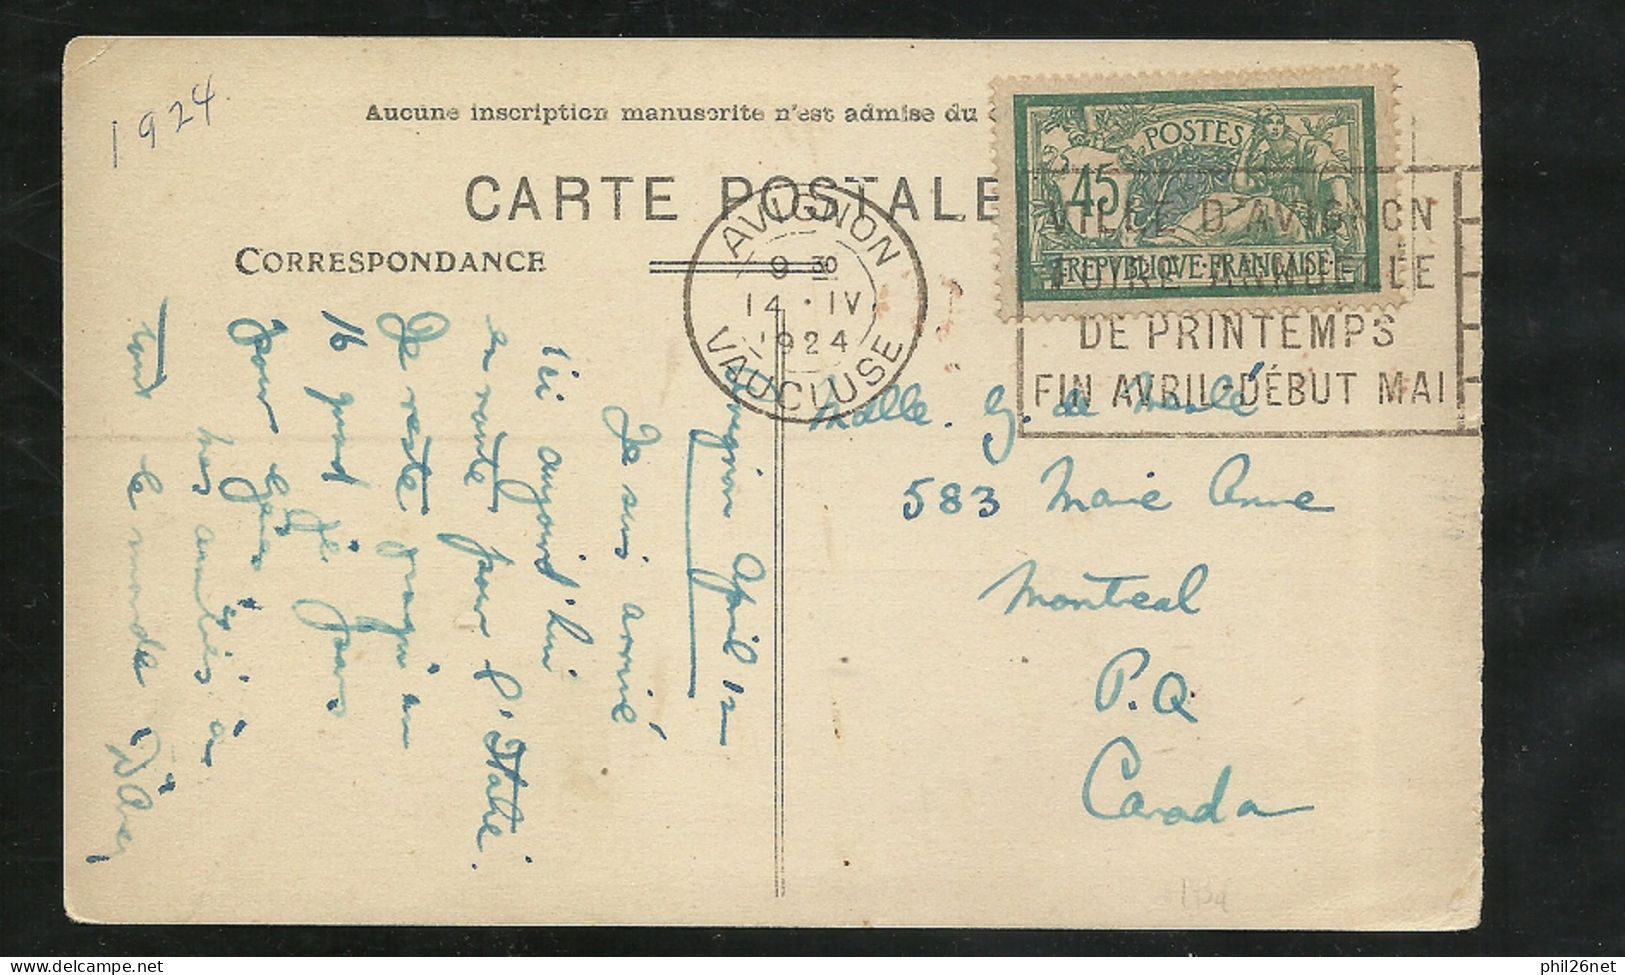 1924
Aucune inscription manuscrite n'est admise du
CARTE POSTALE
CORRESPONDANCE
POSTES
45
REPVBLIQVE·FRANÇAISE
AVIGNON
9 30
14 · IV.
1924
VAUCLUSE
VILLE D'AVIGNON
FOIRE ANNUELLE
DE PRINTEMPS
FIN AVRIL-DÉBUT MAI
Avignon April 12
Je suis arrivé
ici aujourd'hui
en route pour l'Italie.
Je reste jusqu'au
16 quand je pars
pour
mes amitiés à
tout le monde
Melle. G. de
583 Marie Anne
Montreal
P.Q.
Canada
1924
phil26net